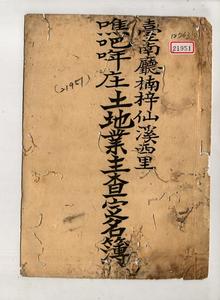 臺南廳楠梓仙溪西里
噍吧哖庄土地業主查定名簿
21951
(21951)